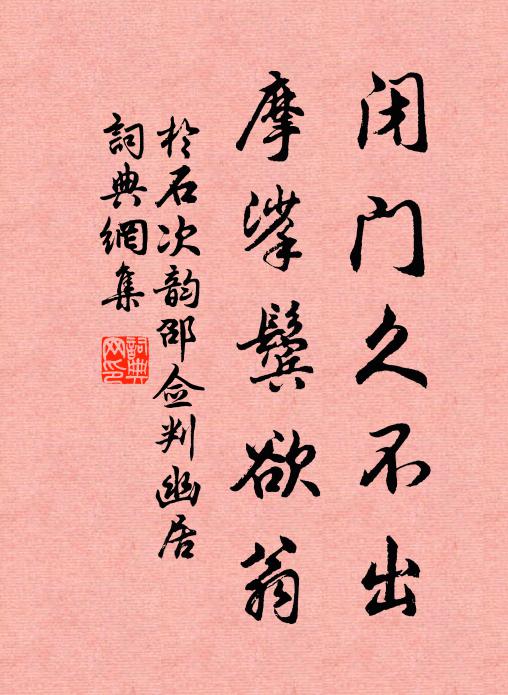 闭门久不出
摩挲鬓欲翁
於石次韵邵佥判幽居
词典網集
詞典
网印